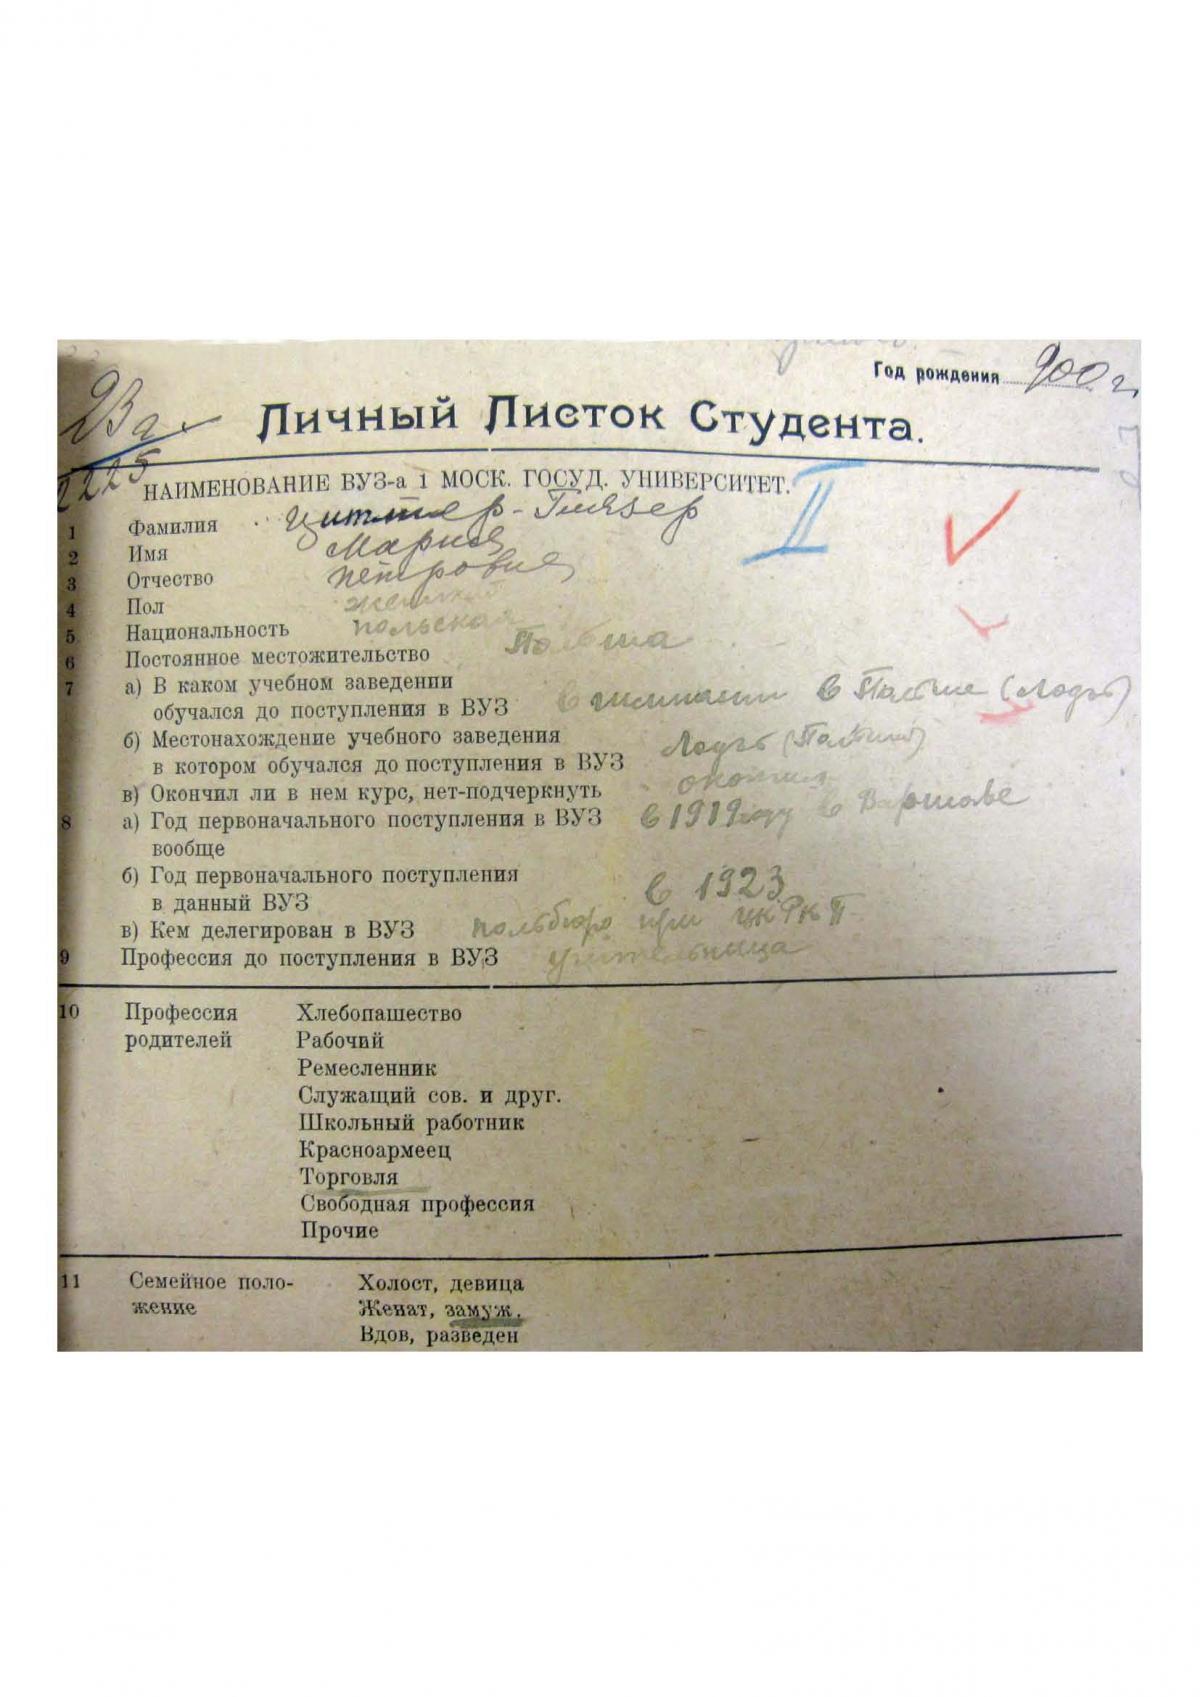 Год рождения 900 г.
23 г.
Личный Листок Студента.
2225
НАИМЕНОВАНИЕ ВУЗ-а 1 МОСК. ГОСУД. УНИВЕРСИТЕТ.
II
1 Фамилия
2 Имя Мария
3 Отчество Петровна
4 Пол женский
5 Национальность польская
6 Постоянное местожительство Польша
7 а) В каком учебном заведении
обучался до поступления в ВУЗ в гимназии в Польше (Лодзь)
б) Местонахождение учебного заведения
в котором обучался до поступления в ВУЗ Лодзь (Польша)
в) Окончил ли в нем курс, нет-подчеркнуть
8 а) Год первоначального поступления в ВУЗ в 1919 году в Варшаве
вообще
б) Год первоначального поступления
в данный ВУЗ в 1923
в) Кем делегирован в ВУЗ польбюро при ЦК РКП
9 Профессия до поступления в ВУЗ учительница
10 Профессия Хлебопашество
родителей Рабочий
Ремесленник
Служащий сов. и друг.
Школьный работник
Красноармеец
Торговля
Свободная профессия
Прочие
11 Семейное поло- Холост, девица
жение Женат, замуж.
Вдов, разведен